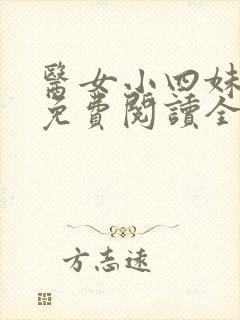 醫女小四妹
免費閱讀全
方志遠